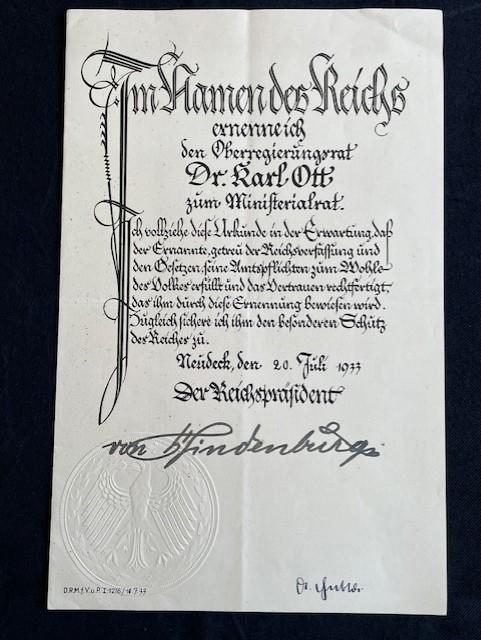 Im Namen des Reichs
ernenne ich
den Oberregierungsrat
Dr. Karl Ott
zum Ministerialrat.
Ich vollziehe diese Urkunde in der Erwartung, daß
der Ernannte, getreu der Reichsverfassung und
den Gesetzen, seine Amtspflichten zum Wohle
des Volkes erfüllt und das Vertrauen rechtfertigt,
das ihm durch diese Ernennung bewiesen wird.
Zugleich sichere ich ihm den besonderen Schutz
des Reiches zu.
Neudeck, den 20. Juli 1933
Der Reichspräsident
von Hindenburg